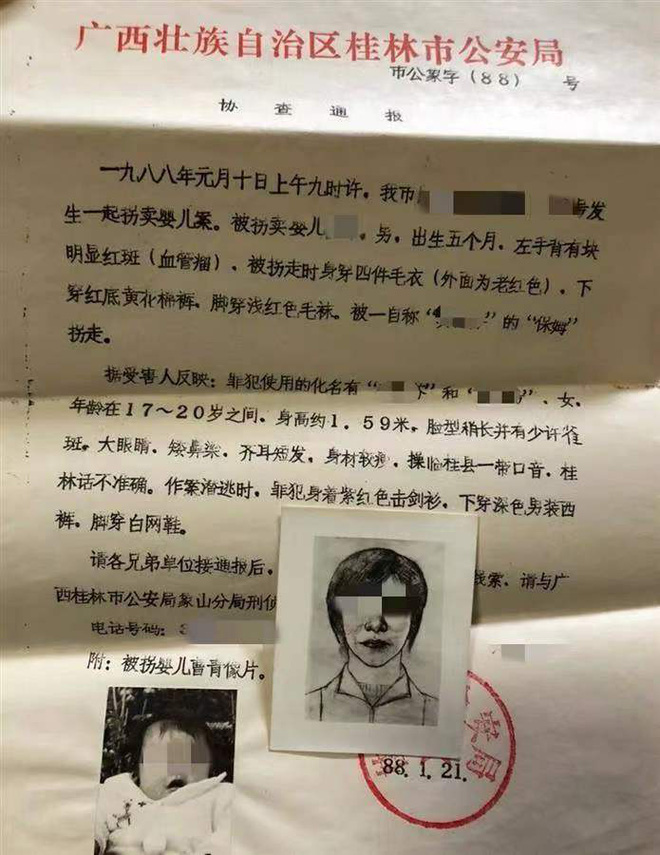 广西壮族自治区桂林市公安局
市公象字(88) 号
协查通报
一九八八年元月十日上午九时许，我市 号发
生一起拐卖婴儿案。被拐卖婴儿 ，男，出生五个月，左手背有块
明显红斑(血管瘤)，被拐走时身穿四件毛衣(外面为老红色)，下
穿红底黄花棉裤，脚穿浅红色毛袜。被一自称“ ”的“保姆”
拐走。
据受害人反映：罪犯使用的化名有“ ”和“ ”，女，
年龄在17～20岁之间，身高约1.59米，脸型稍长并有少许雀
斑。大眼睛，矮鼻梁，齐耳短发，身材较瘦，操临桂县一带口音，桂
林话不准确。作案潜逃时，罪犯身着紫红色击剑衫，下穿深色男装西
裤，脚穿白网鞋。
请各兄弟单位接通报后， 线索，请与广
西桂林市公安局象山分局刑侦
电话号码：3
附：被拐婴儿曹青像片。
88.1.21.